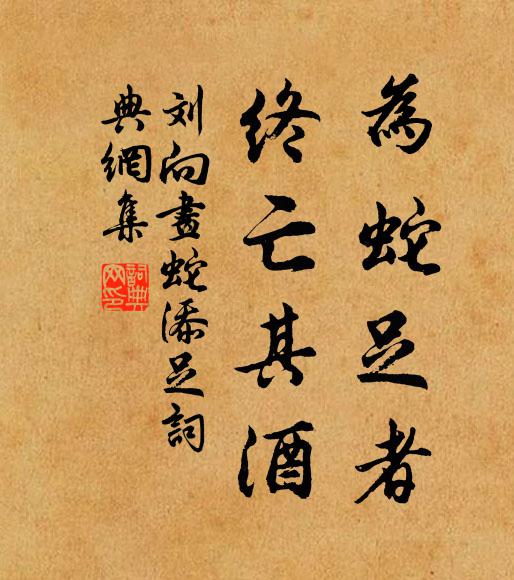 為蛇足者
终亡其酒
刘向畫蛇添足詞
典網集
詞典
网印